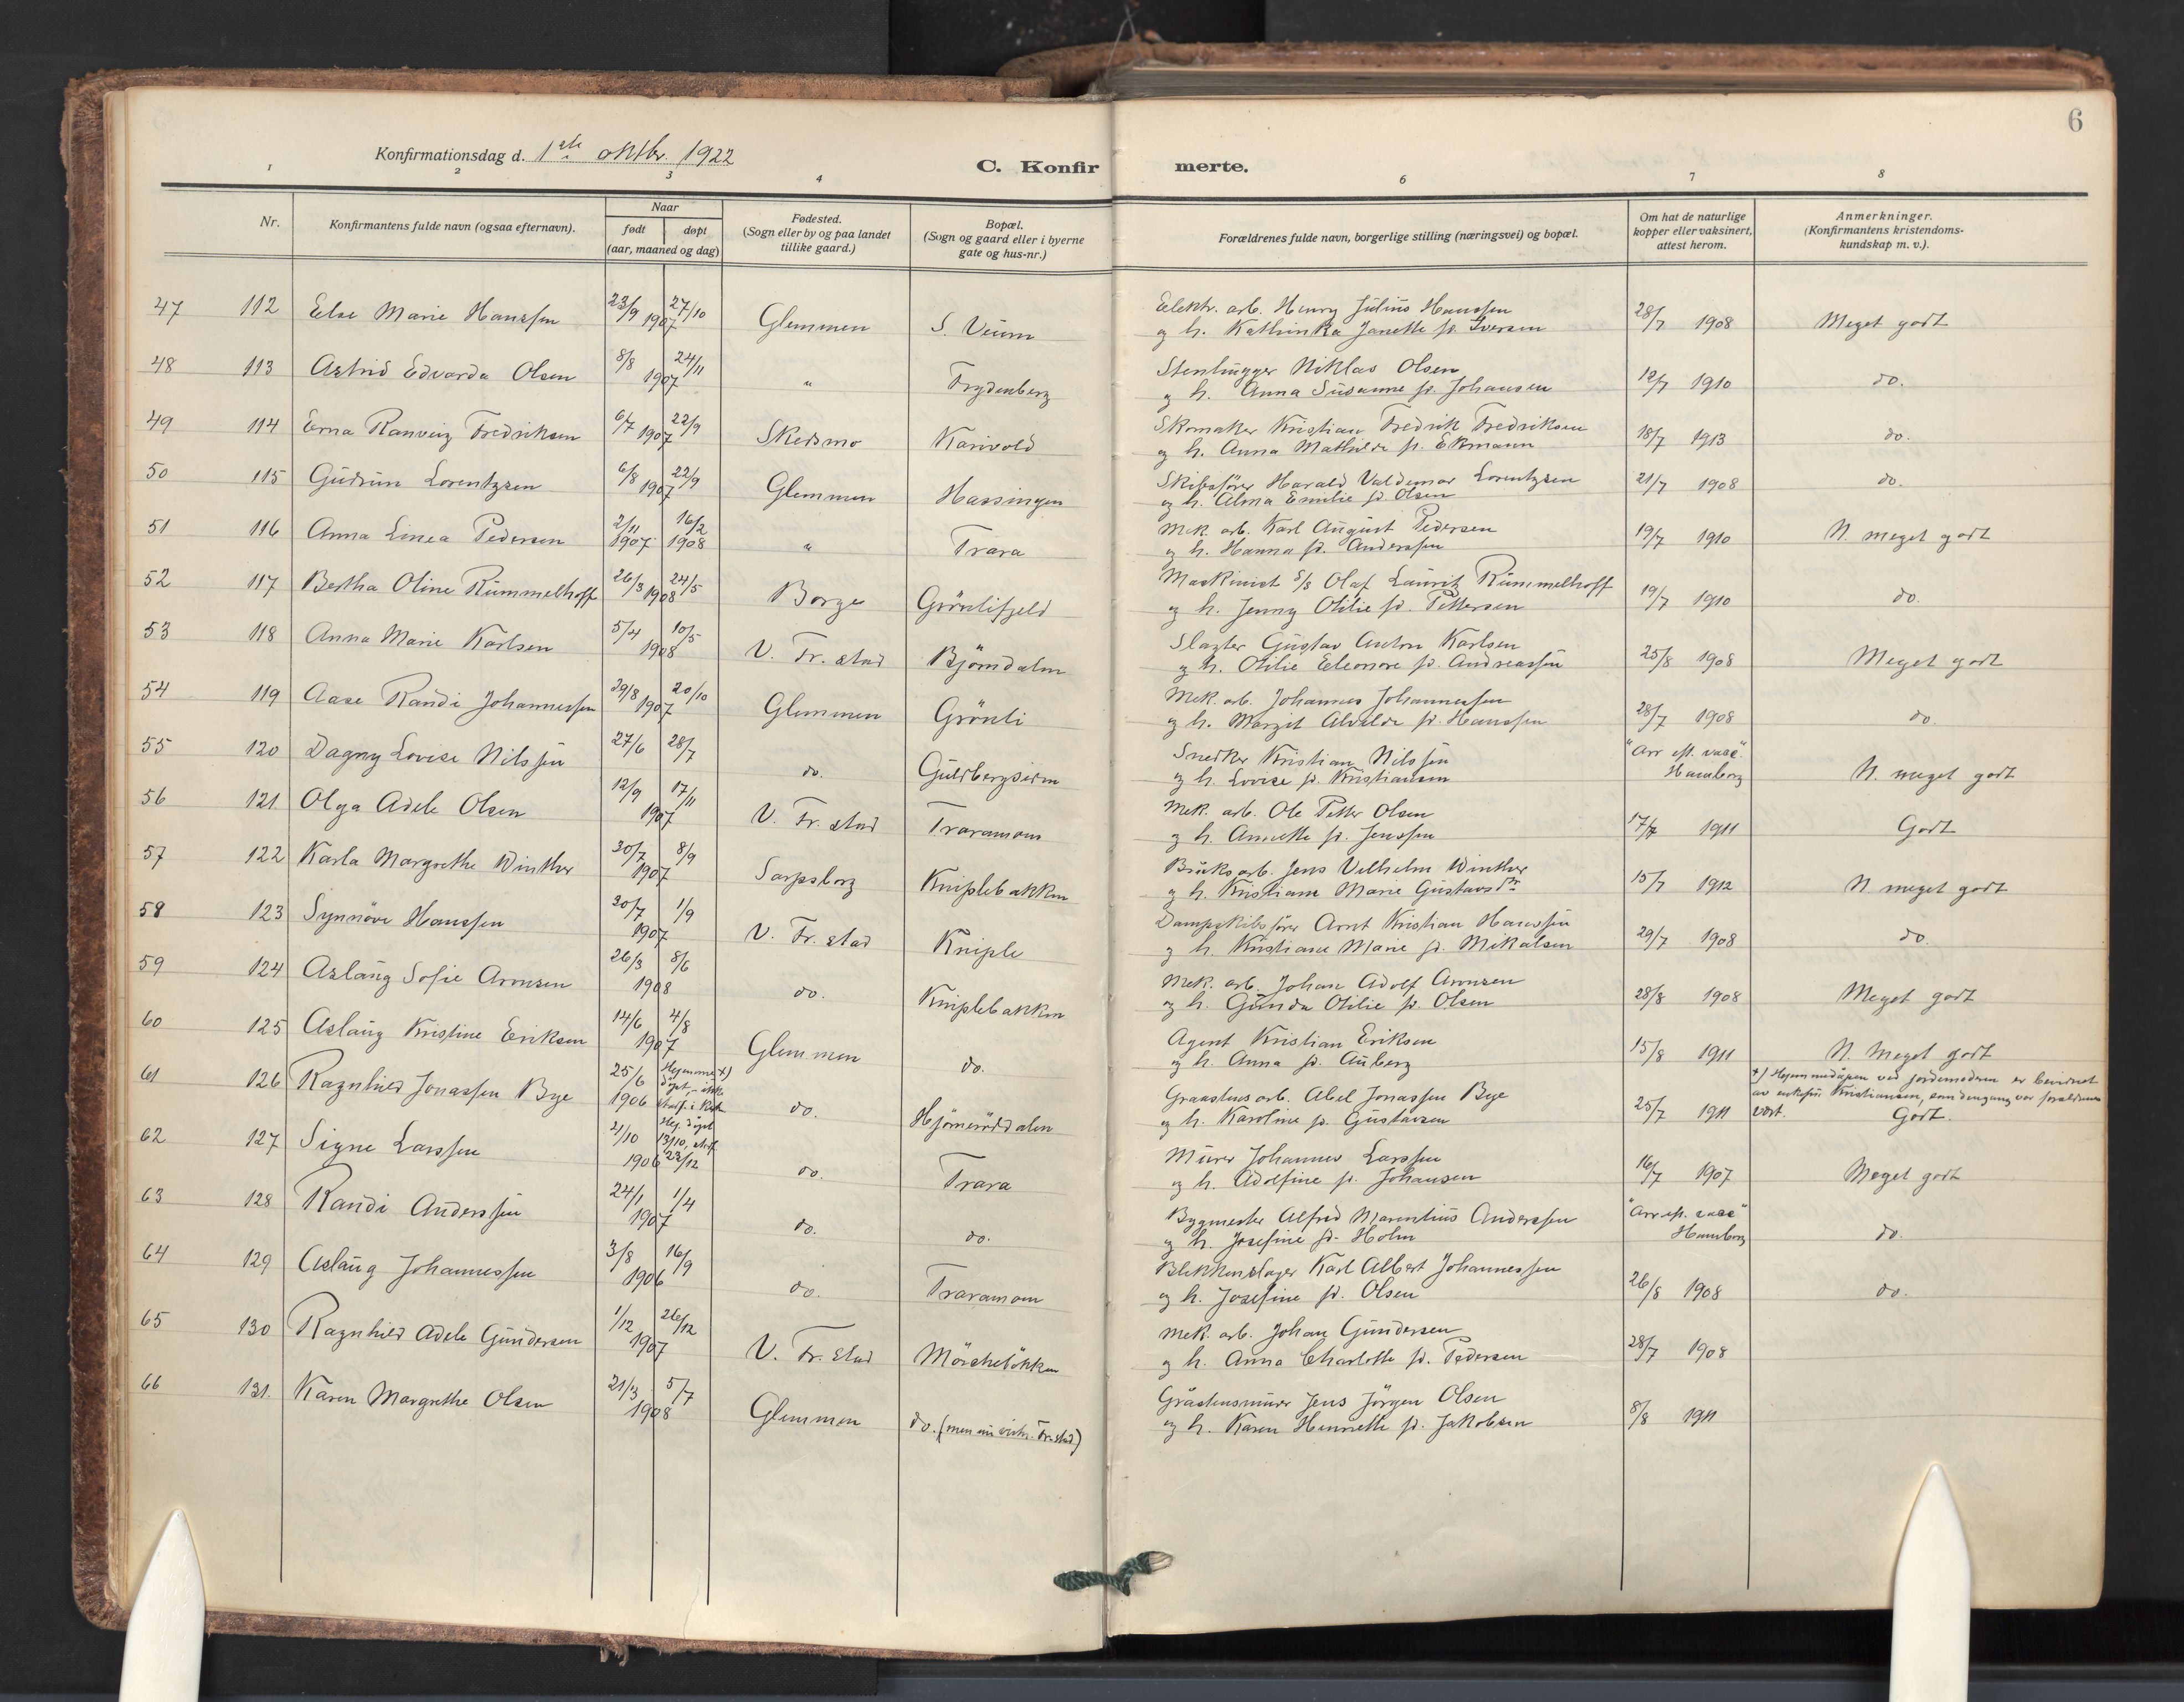 6
Konfirmationsdag d. 1ste oktbr. 1922
C. Konfir merte.
1 2 3 4 6 7 8
Nr.
Konfirmantens fulde navn (ogsaa efternavn).
Naar
født døpt
(aar, maaned og dag)
Fødested.
(Sogn eller by og paa landet
tillike gaard.)
Bopæl.
(Sogn og gaard eller i byerne
gate og hus-nr.)
Forældrenes fulde navn, borgerlige stilling (næringsvei) og bopæl.
Om hat de naturlige
kopper eller vaksinert,
attest herom.
Anmerkninger.
(Konfirmantens kristendoms-
kundskap m. v.).
47 112 Else Marie Hanssen 23/9 1907 27/10 Glemmen S. Veum Elektr. arb. Henry Julius Hanssen
og h. Kathinka Janette f. Iversen 28/7 1908 Meget godt
48 113 Astrid Edvarda Olsen 8/8 1907 24/11 " Frydenberg Stenhugger Niklas Olsen
og h. Anna Susanne f. Johansen 12/7 1910 do.
49 114 Erna Ranveig Fredriksen 6/7 1907 22/9 Skedsmo Karivold Skomaker Kristian Fredrik Fredriksen
og h. Anna Mathilde f. Ekmann 18/7 1913 do.
50 115 Gudrun Lorentzsen 6/8 1907 22/9 Glemmen Hassingen Skibsfører Harald Valdemar Lorentzsen
og h. Alma Emilie f. Olsen 21/7 1908 do.
51 116 Anna Linea Pedersen 2/11 1907 16/2 1908 " Trara Mek. arb. Karl August Pedersen
og h. Hanna f. Anderssen 19/7 1910 N. meget godt
52 117 Bertha Oline Rummelhoff 26/3 1908 24/5 Borge Grönlifjeld Maskinist s/s Olaf Lauritz Rummelhoff
og h. Jenny Otilie f. Pettersen 19/7 1910 do.
53 118 Anna Marie Karlsen 5/4 1908 10/5 V. Fr.stad Björndalen Slagter Gustav Anton Karlsen
og h. Otilie Eleonore f. Andreassen 25/8 1908 Meget godt
54 119 Aase Randi Johannessen 29/8 1907 20/10 Glemmen Grönli Mek. arb. Johannes Johannessen
og h. Margit Alvilde f. Hanssen 28/7 1908 do.
55 120 Dagny Lovise Nilssen 27/6 28/7 do. Guldbergsien Snedker Kristian Nilssen
og h. Lovise f. Kristiansen "Arr eft. vacc."
Hamborg N. meget godt
56 121 Olga Adele Olsen 12/9 1907 17/11 V. Fr.stad Traramoen Mek. arb. Ole Petter Olsen
og h. Annette f. Jenssen 17/7 1911 Godt
57 122 Karla Margrethe Winther 30/7 1907 8/9 Sarpsborg Kniplebakken Bruksarb. Jens Vilhelm Winther
og h. Kristiane Marie Gustavsdtr 15/7 1912 N meget godt
58 123 Synnöve Hanssen 20/7 1907 1/9 V. Fr.stad Kniple Dampskibsfører Arnt Kristian Hanssen
og h. Kristiane Marie f. Mikalsen 29/7 1908 do.
59 124 Aslaug Sofie Aronsen 26/3 1908 8/6 do. Kniplebakken Mek. arb. Johan Adolf Aronsen
og h. Gunda Otilie f. Olsen 28/8 1908 Meget godt
60 125 Aslaug Kristine Eriksen 14/6 1907 4/8 Glemmen do. Agent Kristian Eriksen
og h. Anna f. Auberg 15/8 1911 N. Meget godt
61 126 Ragnhild Jonassen Bye 25/6 1906 Hjemme x)
döpt, ikke
i do. Hjörneröddalen Graastensarb. Abel Jonassen Bye
og h. Karoline f. Gustavsen 25/7 1911 x) Hjemmedåpen ved jordmoderen er bevidnet
av enkefru Kristiansen, som dengang var foreldrenes
vert. Godt.
62 127 Signe Larssen 2/10 1906 Hj. döpt
13/10, stadf.
22/12 do. Trara Murer Johannes Larssen
og h. Adolfine f. Johansen 16/7 1907 Meget godt
63 128 Randi Anderssen 24/1 1907 1/4 do. do. Bygmester Alfred Marentius Anderssen
og h. Josefine f. Holm "Arr eft. vacc"
Hamborg do.
64 129 Aslaug Johannessen 3/8 1906 16/9 do. Traramoen Blikkenslager Karl Albert Johannessen
og h. Josefine f. Olsen 26/8 1908 do.
65 130 Ragnhild Adele Gundersen 1/12 1907 26/12 V. Fr.stad Mörkelökken Mek. arb. Johan Gundersen
og h. Anna Charlotte f. Pedersen 28/7 1908
66 131. Karen Margrethe Olsen 21/3 1908 5/7 Glemmen do. (men nu vestr. Fr.stad) Gråstensmurer Jens Jörgen Olsen
og h. Karen Henriette f. Jakobsen 8/8 1911